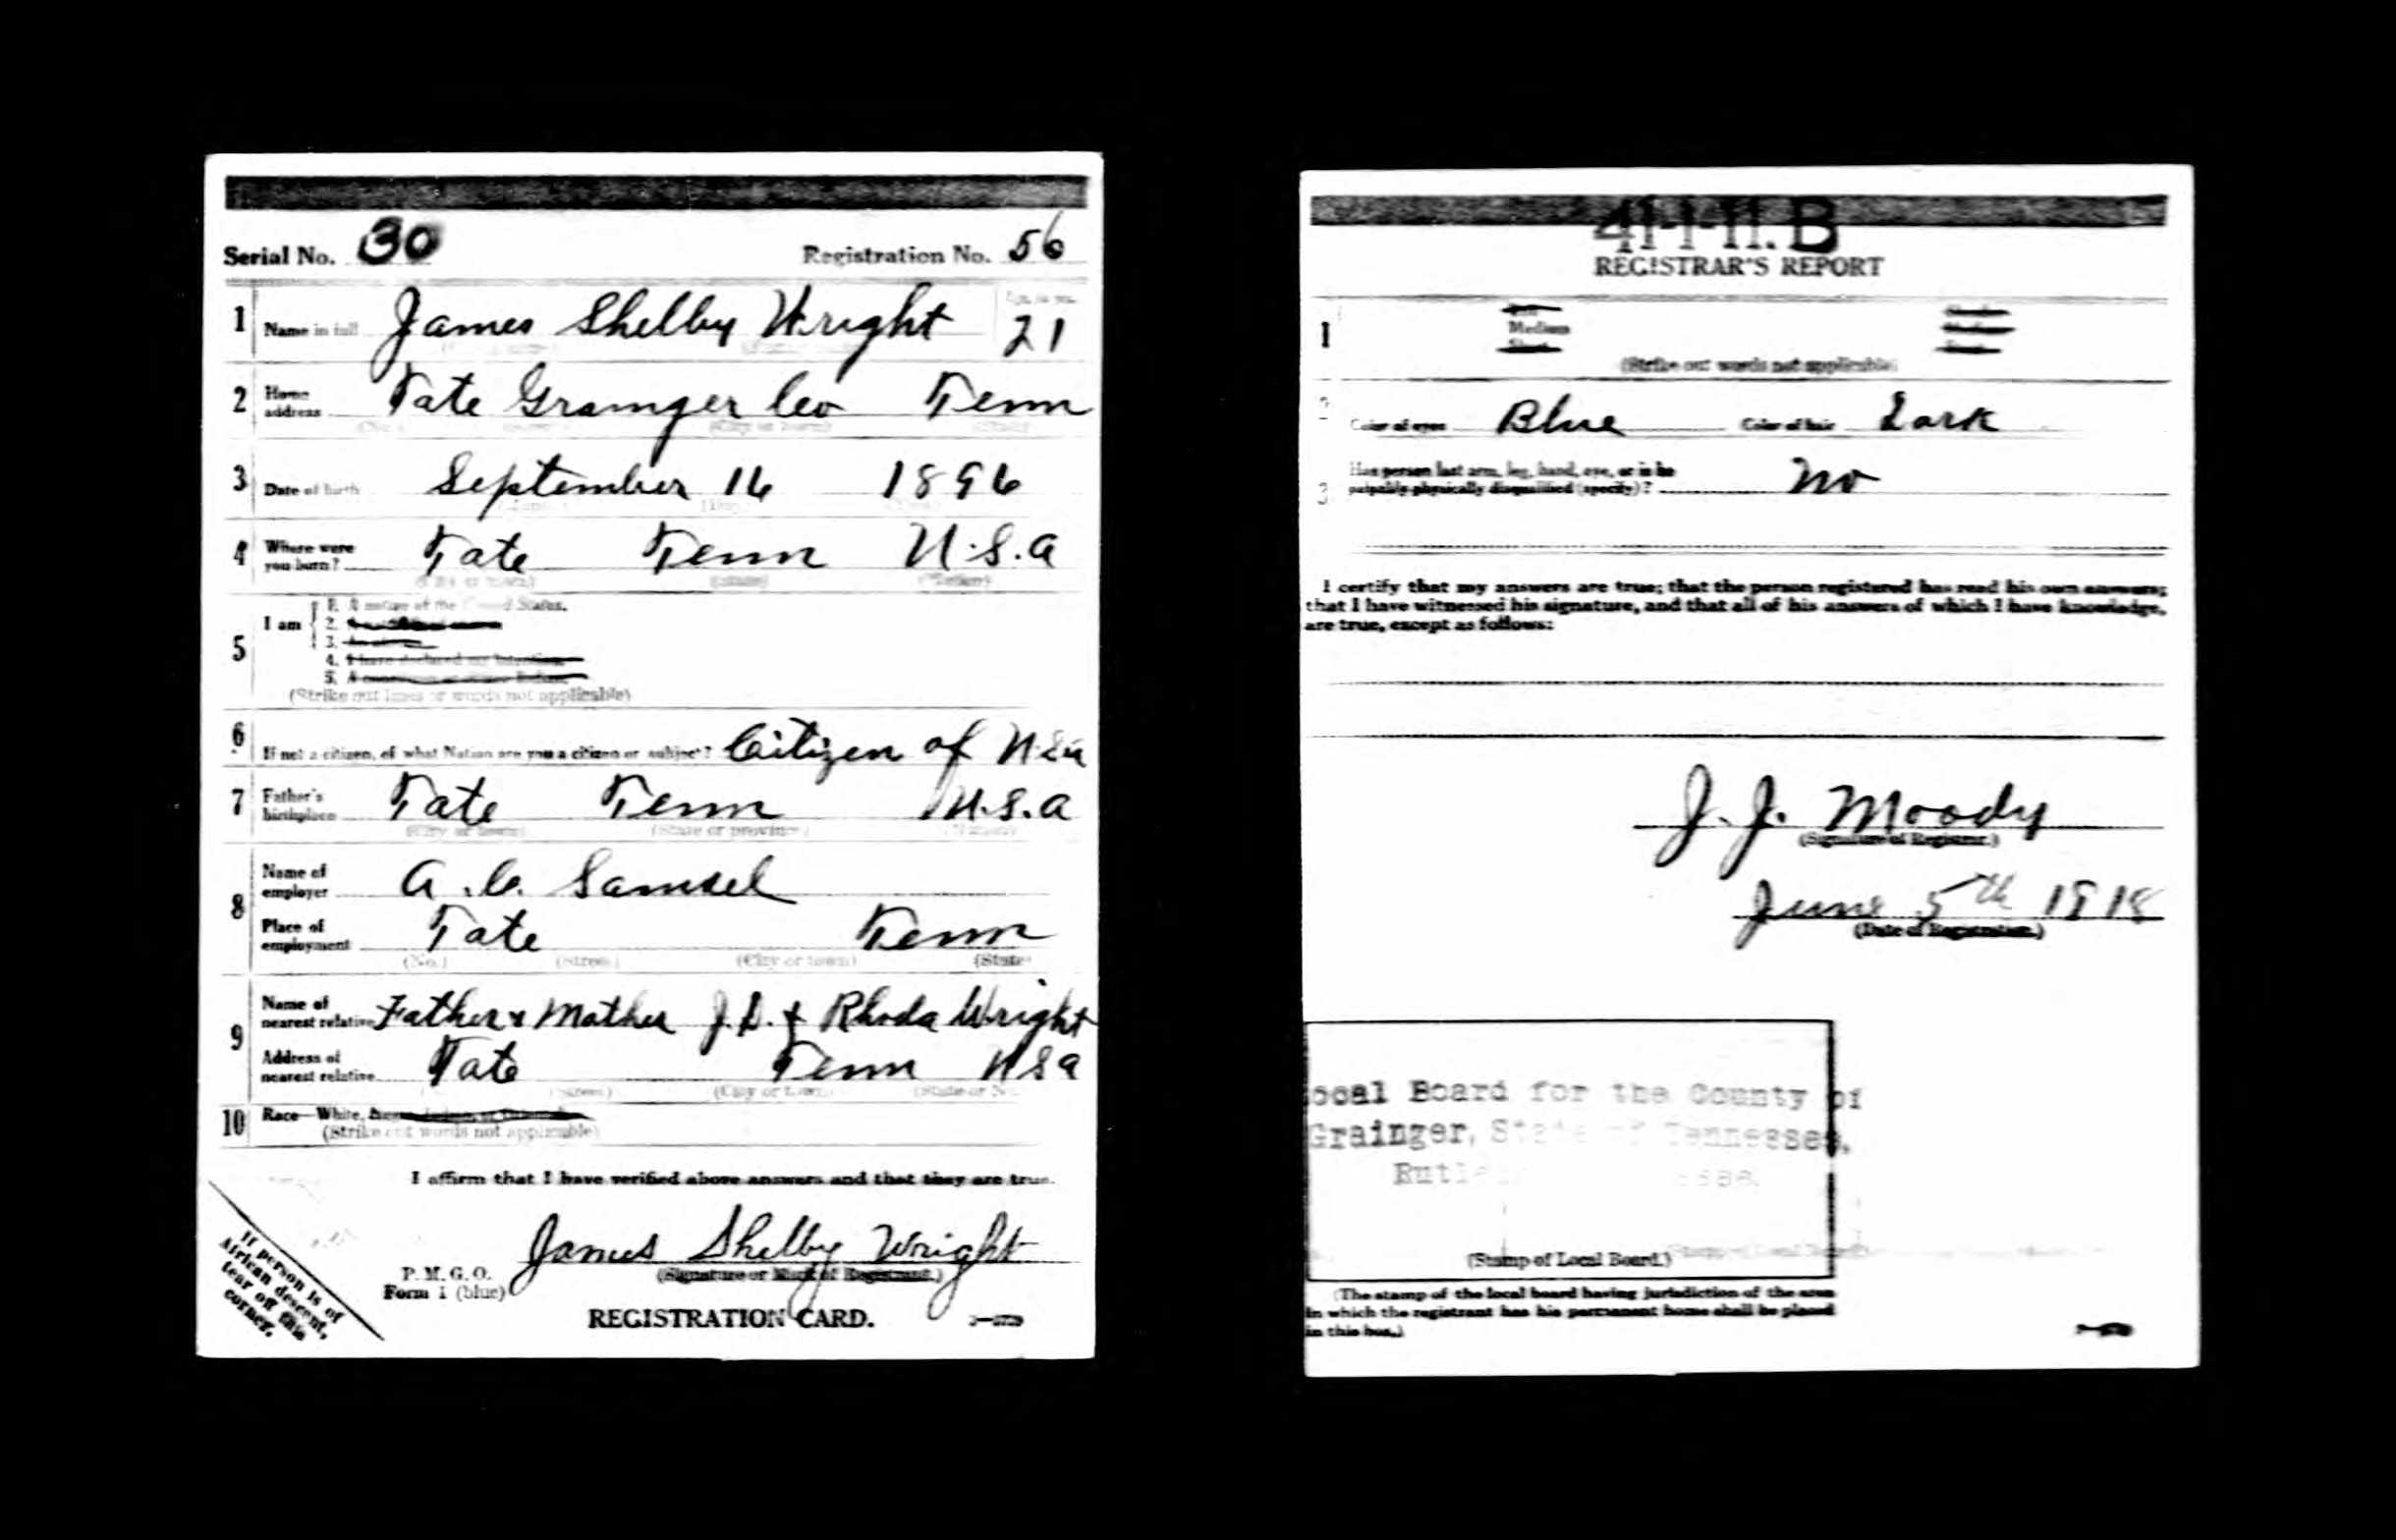 Serial No. 30 Registration No. 56
1 Name in full James Shelby Wright 21
2 Home address Tate Grainger Co Tenn
3 Date of birth September 16 1896
4 Where were you born? Tate Tenn U.S.A
(State)
5 I am 1. A native of the United States.
2.
3.
4. I have declared my intention
5.
(Strike out lines or words not applicable)
6 If not a citizen, of what Nation are you a citizen or subject? Citizen of USA
7 Father's birthplace Tate Tenn U.S.A
(City or town) (State or province) (Nation)
8 Name of employer A.C. Samsel
Place of employment Tate Tenn
(No.) (Street) (City or town) (State)
9 Name of nearest relative Father & Mother J.D. & Rhoda Wright
Address of nearest relative Tate Tenn USA
(Street) (City or town)
10 Race—White,
(Strike out words not applicable)
I affirm that I have verified above answers and that they are true.
James Shelby Wright
(Signature or Mark of Registrant.)
P. M. G. O.
Form 1 (blue)
REGISTRATION CARD.
If person is of
African descent,
tear off this
corner.
41-1-11. B
REGISTRAR'S REPORT
1 Medium
(Strike out words not applicable)
2 Color of eyes Blue Color of hair Dark
3 Has person lost arm, leg, hand, eye, or is he
palpably physically disqualified (specify)? no
I certify that my answers are true; that the person registered has read his own answers;
that I have witnessed his signature, and that all of his answers of which I have knowledge,
are true, except as follows:
J. J. Moody
(Signature of Registrar.)
June 5th 1918
(Date of Registration.)
ocal Board for the County of
Grainger, State of Tennessee,
(Stamp of Local Board.)
(The stamp of the local board having jurisdiction of the area
in which the registrant has his permanent home shall be placed
in this box.)